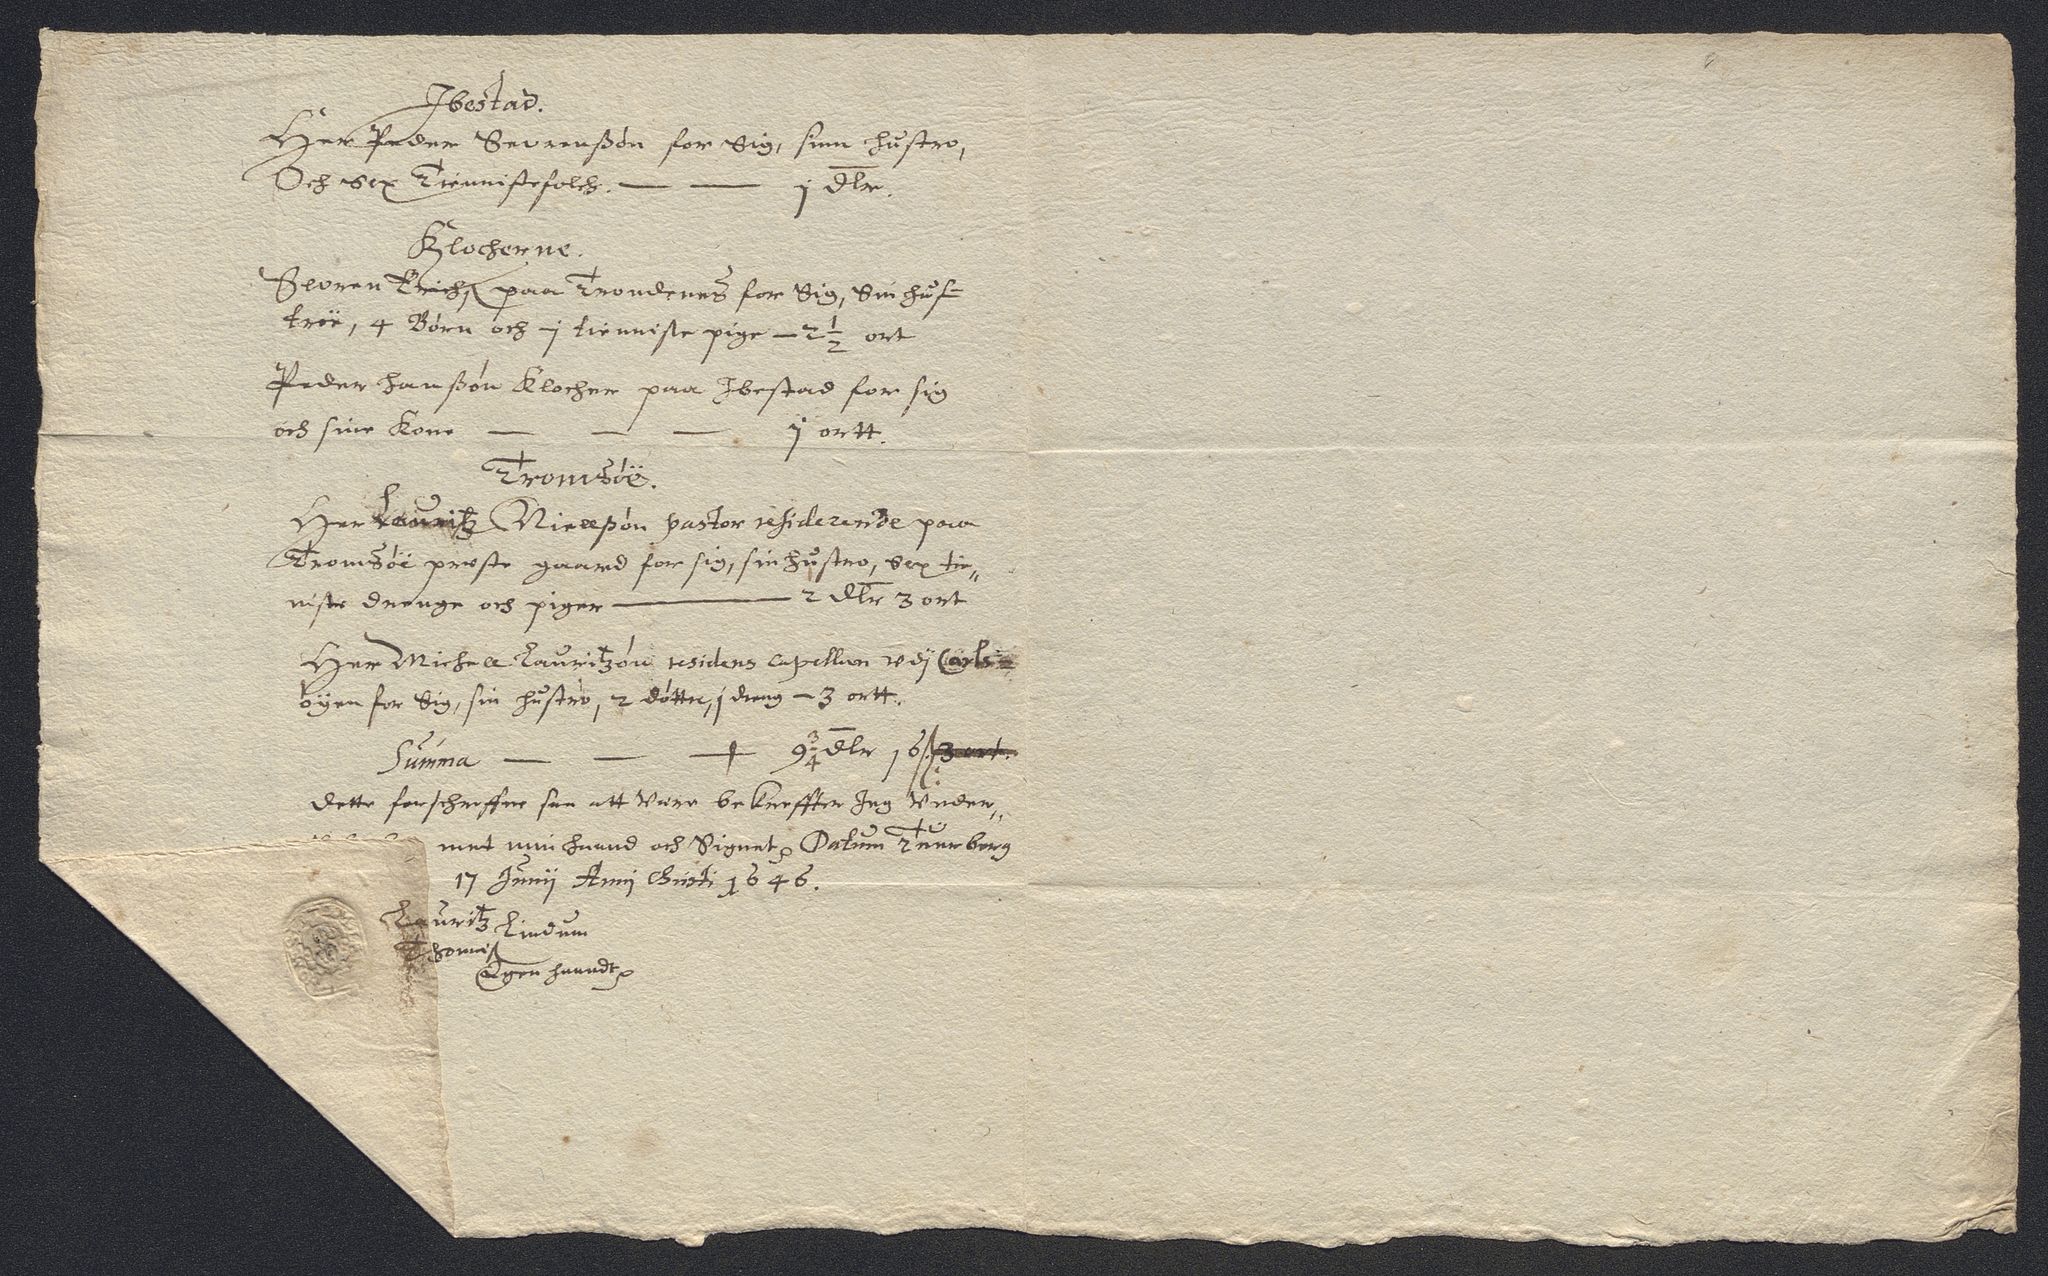 Ibestad.
Her Peder Seurenßøn for Sig, sinn hustro,
Och sex Tiennistefolch. — — j Dlr.
Klocherne.
Seuren Erichß paa Trondenes for Sig, Sin hus=
troe, 4 Børn och j tienniste pige — 2 1/2 ort
Peder Hanßøn Klocher paa Ibestad for sig
och sine Kone — — — j ortt.
Tromsøe.
Her Lauritz Nielßøn pastor residerende paa
Tromsøe preste gaard for sig, sin hustro, sex tie„
niste drenge och piger — 2 dlr 3 ort
Her Michell Lauritzøn residens Capellan vdj Carls=
øyen for Sig, sin hustro, 2 døttre, j dreng — 3 ortt.
Summa — — — 9 3/4 Dlr 16 ß 3 ort.
Dette forschreffne saa att Være bekreffter Jeg Vnder„
met min haand och Signet, Datum
17 Junij Anni Christi 1646.
Lauritz Lindum
Thomeß
Egen haandt